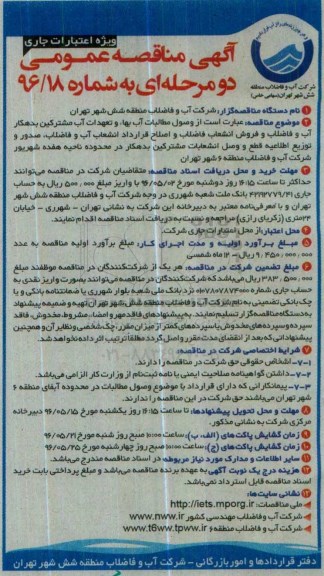 ویژه اعتبارات جاری
آگهی مناقصه عمومی
دو مرحله‌ای به شماره ۹۶/۱۸
شرکت آب و فاضلاب منطقه
شش شهر تهران (سهامی خاص)
۱ نام دستگاه مناقصه‌گزار: شرکت آب و فاضلاب منطقه شش شهر تهران
۲ موضوع مناقصه: عبارت است از وصول مطالبات آب بها، و تعهدات آب مشترکین بدهکار
آب و فاضلاب و فروش انشعاب فاضلاب و اصلاح قرارداد انشعاب آب و فاضلاب، صدور و
توزیع اطلاعیه قطع و وصل انشعابات مشترکین بدهکار در محدوده ناحیه هفده شهریور
شرکت آب و فاضلاب منطقه ۶ شهر تهران
۳ مهلت خرید و محل دریافت اسناد مناقصه: متقاضیان شرکت در مناقصه می‌توانند
حداکثر تا ساعت ۱۶:۱۵ روز دوشنبه مورخ ۹۶/۰۵/۰۲ با واریز مبلغ ۵۰۰,۰۰۰ ریال به حساب
جاری بانک ملت شعبه شهرری در وجه شرکت آب و فاضلاب منطقه شش شهر
تهران و با معرفی‌نامه معتبر به دبیرخانه این شرکت به نشانی تهران - شهرری - خیابان
۲۴متری (زکریای رازی) مراجعه و نسبت به دریافت اسناد مناقصه اقدام نمایند.
۴ محل اعتبار: از محل اعتبارات جاری شرکت.
۵ مبلغ برآورد اولیه و مدت اجرای کار: مبلغ برآورد اولیه مناقصه به عدد
۹,۴۵۰,۰۰۰,۰۰۰ ریال - ۱۲ ماه شمسی
۶ مبلغ تضمین شرکت در مناقصه: هر یک از شرکت‌کنندگان در مناقصه موظفند مبلغ
۳۸۳,۵۰۰,۰۰۰ ریال می‌باشد که شرکت‌کنندگان در مناقصه می‌توانند بصورت واریز نقدی به
حساب جاری شماره نزد بانک ملی شعبه بلوار شهرری یا ضمانتنامه بانکی و یا
چک بانکی تضمینی به نام شرکت آب و فاضلاب منطقه شش شهر تهران تهیه و ضمیمه پیشنهاد
به دستگاه مناقصه‌گزار تسلیم نمایند. به پیشنهادهای فاقد مهر و امضاء، مشروط، مخدوش، فاقد
سپرده و سپرده‌های مخدوش یا سپرده‌های کمتر از میزان مقرر، چک شخصی و نظایر آن و همچنین
پیشنهاداتی که بعد از انقضای مدت مقرر واصل گردد مطلقاً ترتیب اثر داده نخواهد شد.
۷ شرایط اختصاصی شرکت در مناقصه:
۷-۱- اشخاص حقوقی حق شرکت در مناقصه را دارند.
۷-۲- داشتن گواهینامه صلاحیت ایمنی یا نامه ثبت‌نام از وزارت کار الزامی می‌باشد.
۷-۳- پیمانکارانی که دارای قرارداد با موضوع وصول مطالبات در محدوده آبفای منطقه ۶
شهر تهران می‌باشند حق شرکت در این مناقصه را ندارند.
۸ مهلت و محل تحویل پیشنهادها: تا ساعت ۱۶:۱۵ روز یکشنبه مورخ ۹۶/۰۵/۱۵ دبیرخانه
مرکزی شرکت به نشانی مذکور.
۹ زمان گشایش پاکت‌های (الف، ب): ساعت ۱۰:۰۰ صبح روز شنبه مورخ ۹۶/۰۵/۲۱
۱۰ زمان گشایش پاکت‌های (ج): ساعت ۱۰:۰۰ صبح روز چهارشنبه مورخ ۹۶/۰۵/۲۵
۱۱ سایر اطلاعات و مدارک مورد نیاز مربوطه: در اسناد مناقصه مندرج می‌باشد.
۱۲ هزینه درج یک نوبت آگهی به عهده برنده مناقصه می‌باشد و مبلغ پرداختی بابت خرید
اسناد مناقصه قابل استرداد نمی‌باشد.
۱۳ نشانی سایت‌ها:
ملی مناقصات: http://iets.mporg.ir
شرکت آب و فاضلاب مهندسی کشور www.nww.ir
شرکت آب و فاضلاب منطقه ۶ www.t6ww.tpww.ir
دفتر قراردادها و امور بازرگانی - شرکت آب و فاضلاب منطقه شش شهر تهران